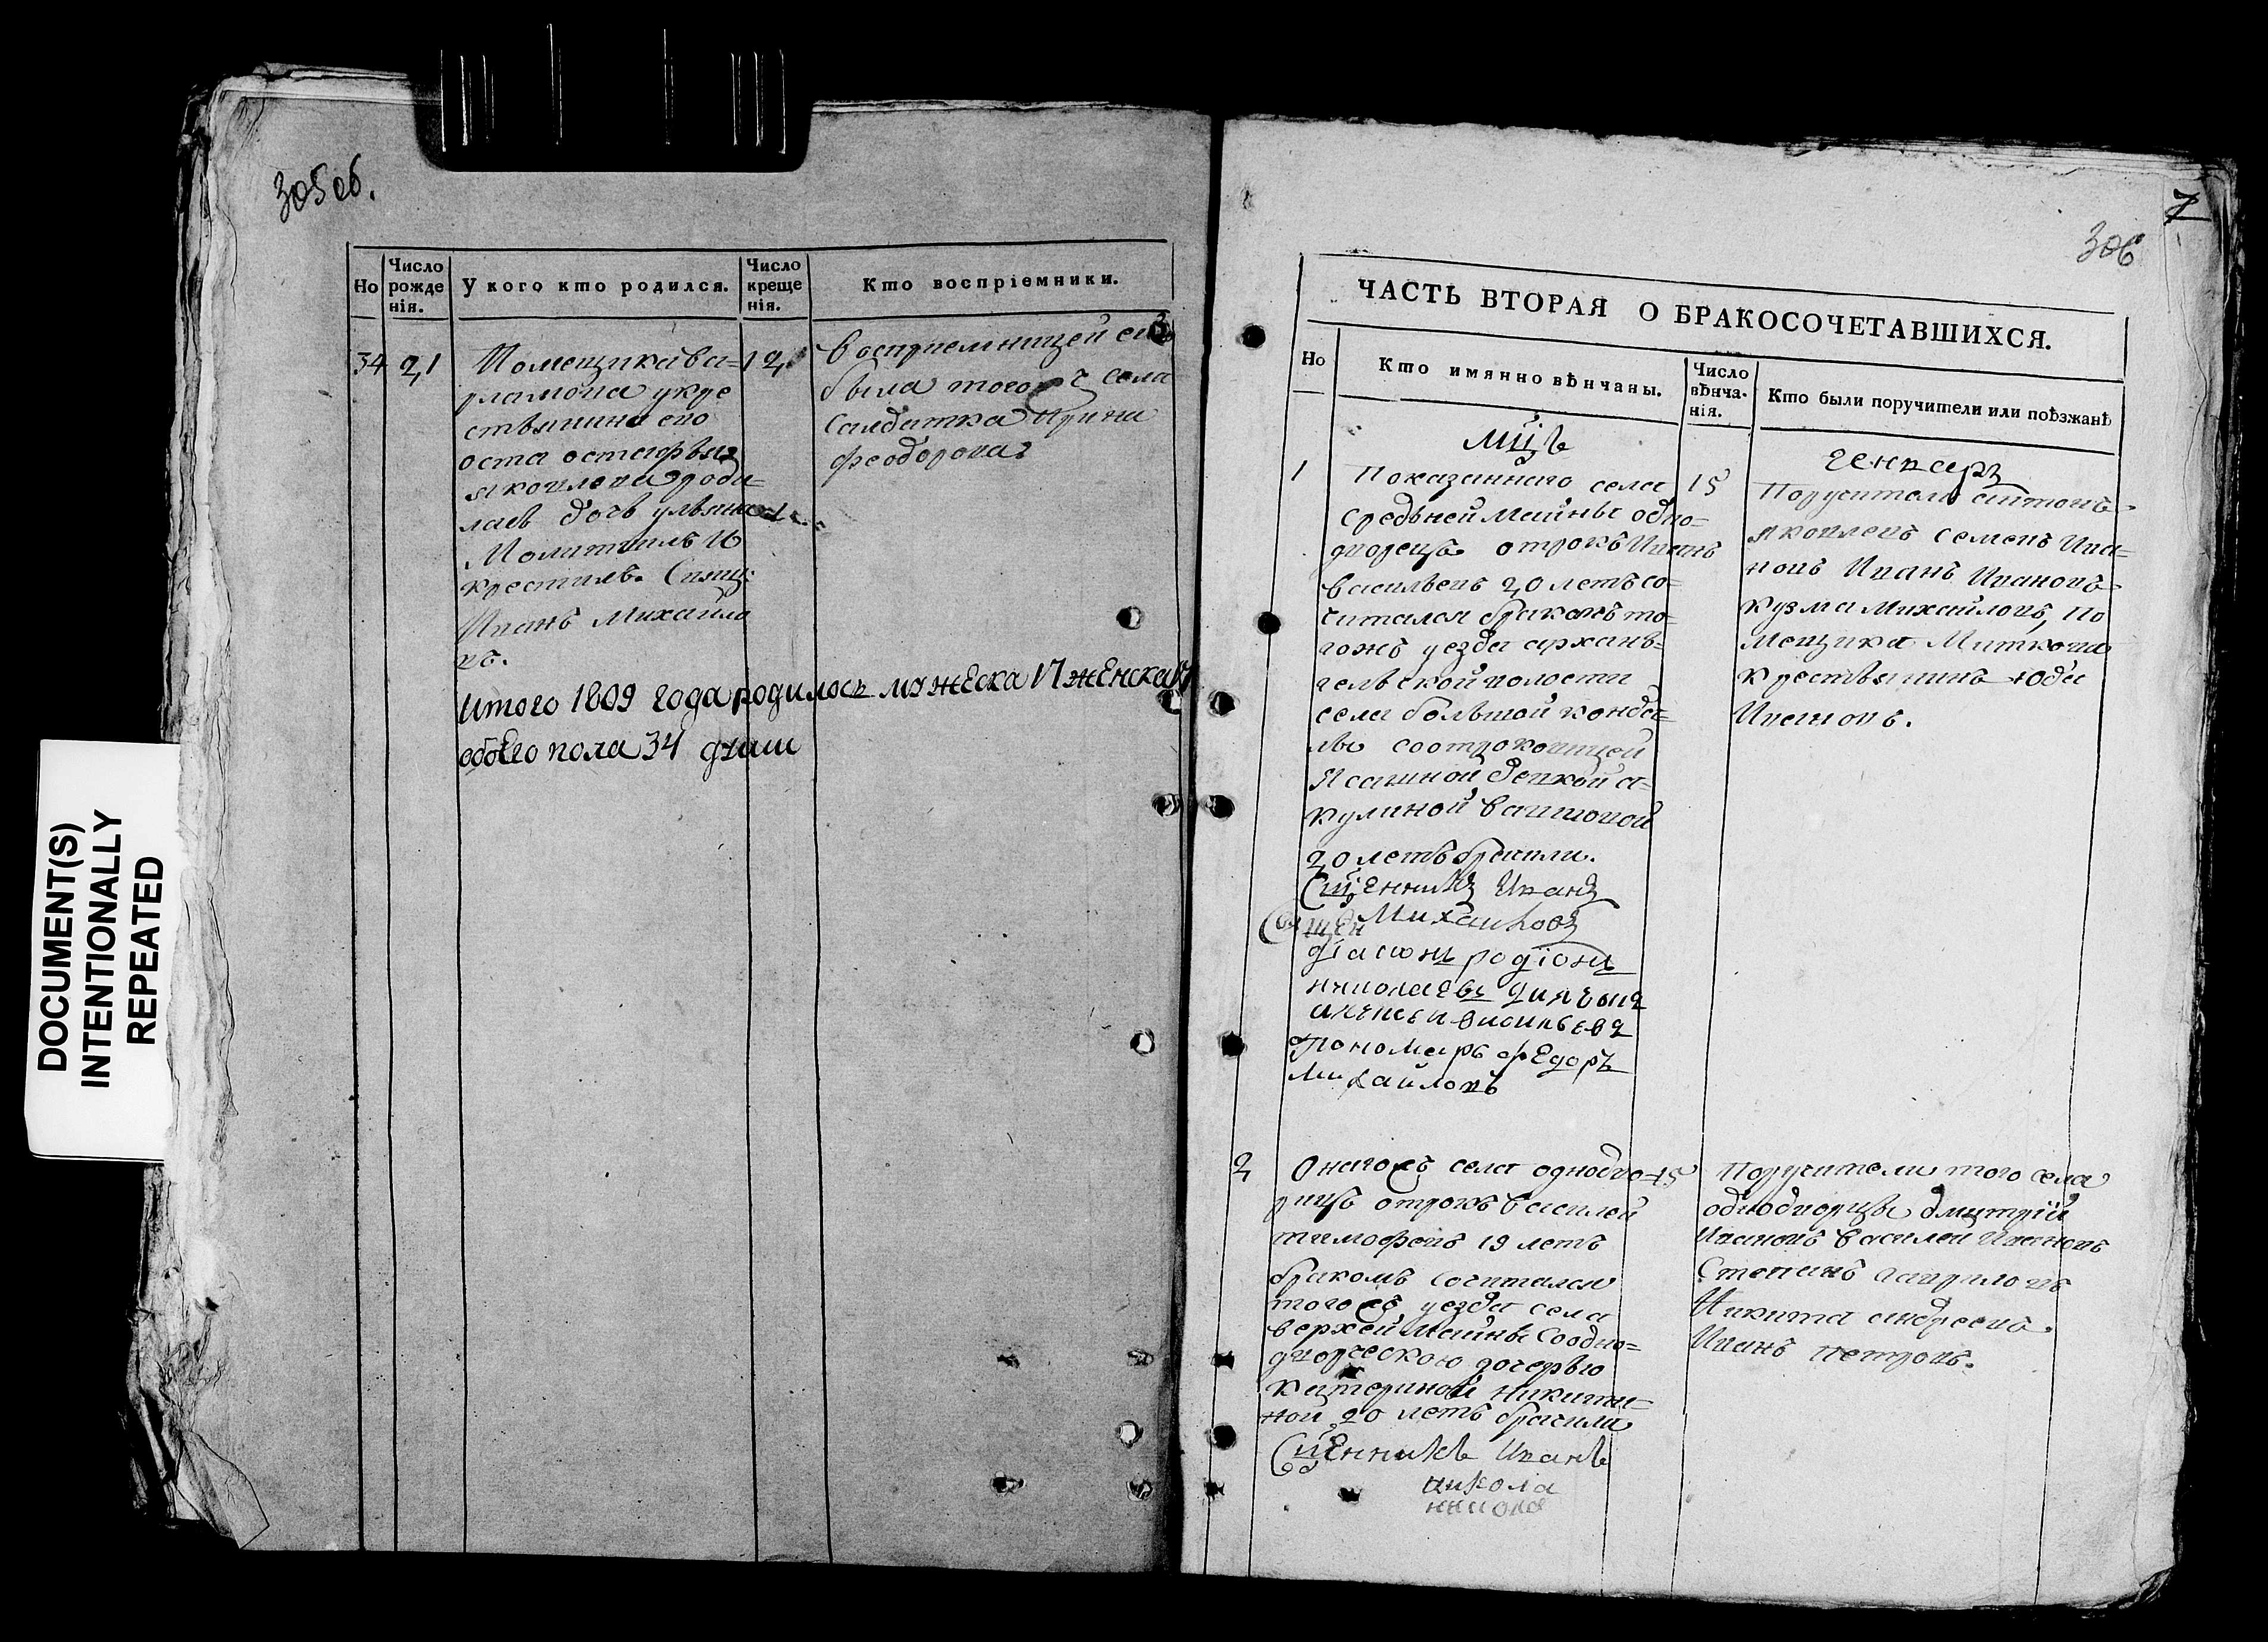 305 об.
Но
Число рожде нія.
У кого кто родился.
Число креще нія.
Кто воспріемники.
34 21 Помещика ва=
рламова укре
стьянина его
остафья
яковлева роди=
лась дочь ульяна
Молитвилъ и
крестилъ. Свящ:
Иванъ Михайло
въ.
12
Восприемницей
была тогожъ села
Салдатка Ирина
феодорова
итого 1809 года родилось мужеска 17 женска 17
обоего пола 34 души
DOCUMENT(S)
INTENTIONALLY
REPEATED
7
306
ЧАСТЬ ВТОРАЯ О БРАКОСОЧЕТАВШИХСЯ.
Но
Кто имянно вѣнчаны.
Число вѣнча- нія.
Кто были поручители или поѣзжанѣ
Мцъ
генварь
1 Показаннаго села
средьней Майны одно=
дворецъ отрокъ Иванъ
васильевъ 20 летъ со=
читался бракомъ то=
гожъ уезда арханъ=
гельской волости
села большой конда=
лы соотроковицей
Ясашной девкой а=
кулиной
20 летъ брачили.
Сщенникъ Иванъ
Михайловъ
діаконъ родіонъ
николаевъ дьячокъ
алексей васильевъ
Пономарь Федоръ
михайловъ
15
Поручители антонъ
яковлевъ семенъ Ива=
новъ Иванъ Ивановъ
кузма Михайловъ, по
мещика Миткова
крестьянинъ юда
Ивановъ.
2 Онагожъ села однодво=
рицъ отрокъ василей
тимофевъ 19 летъ
бракомъ сочитался
тогожъ уезда села
верхей майны соодно=
дворческою дочерью
катериной никити=
ной 20 летъ брачили
Сщенникъ Иванъ
никола
никола
15
Поручители того села
однодворцы дмитрій
Ивановъ василей Ивановъ
Степанъ гавриловъ
Никита андреевъ
Иванъ петровъ.